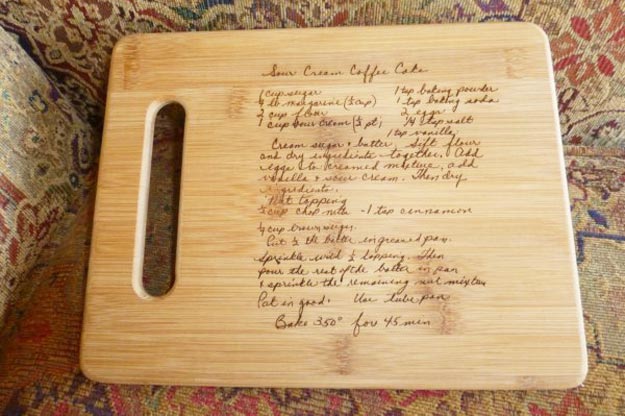 Sour Cream Coffee Cake
1 cup sugar 1 tsp baking powder
lb margarine (½ cup) 1 tsp baking soda
2 cup flour 2 eggs
1 cup sour cream (½ pt) ¼ tsp salt
1 tsp vanilla
Cream sugar & butter Sift flour
and dry ingredients together. Add
eggs to creamed mixture, add
vanilla & sour cream. Then dry
ingredients.
Nut topping
cup chop nuts - 1 tsp cinnamon
¼ cup brown sugar.
Put ½ the batter in greased pan.
Sprinkle with ½ topping. Then
pour the rest of the batter in pan
& sprinkle the remaining nut mixture
Pat in good. Use tube pan
Bake 350° for 45 min